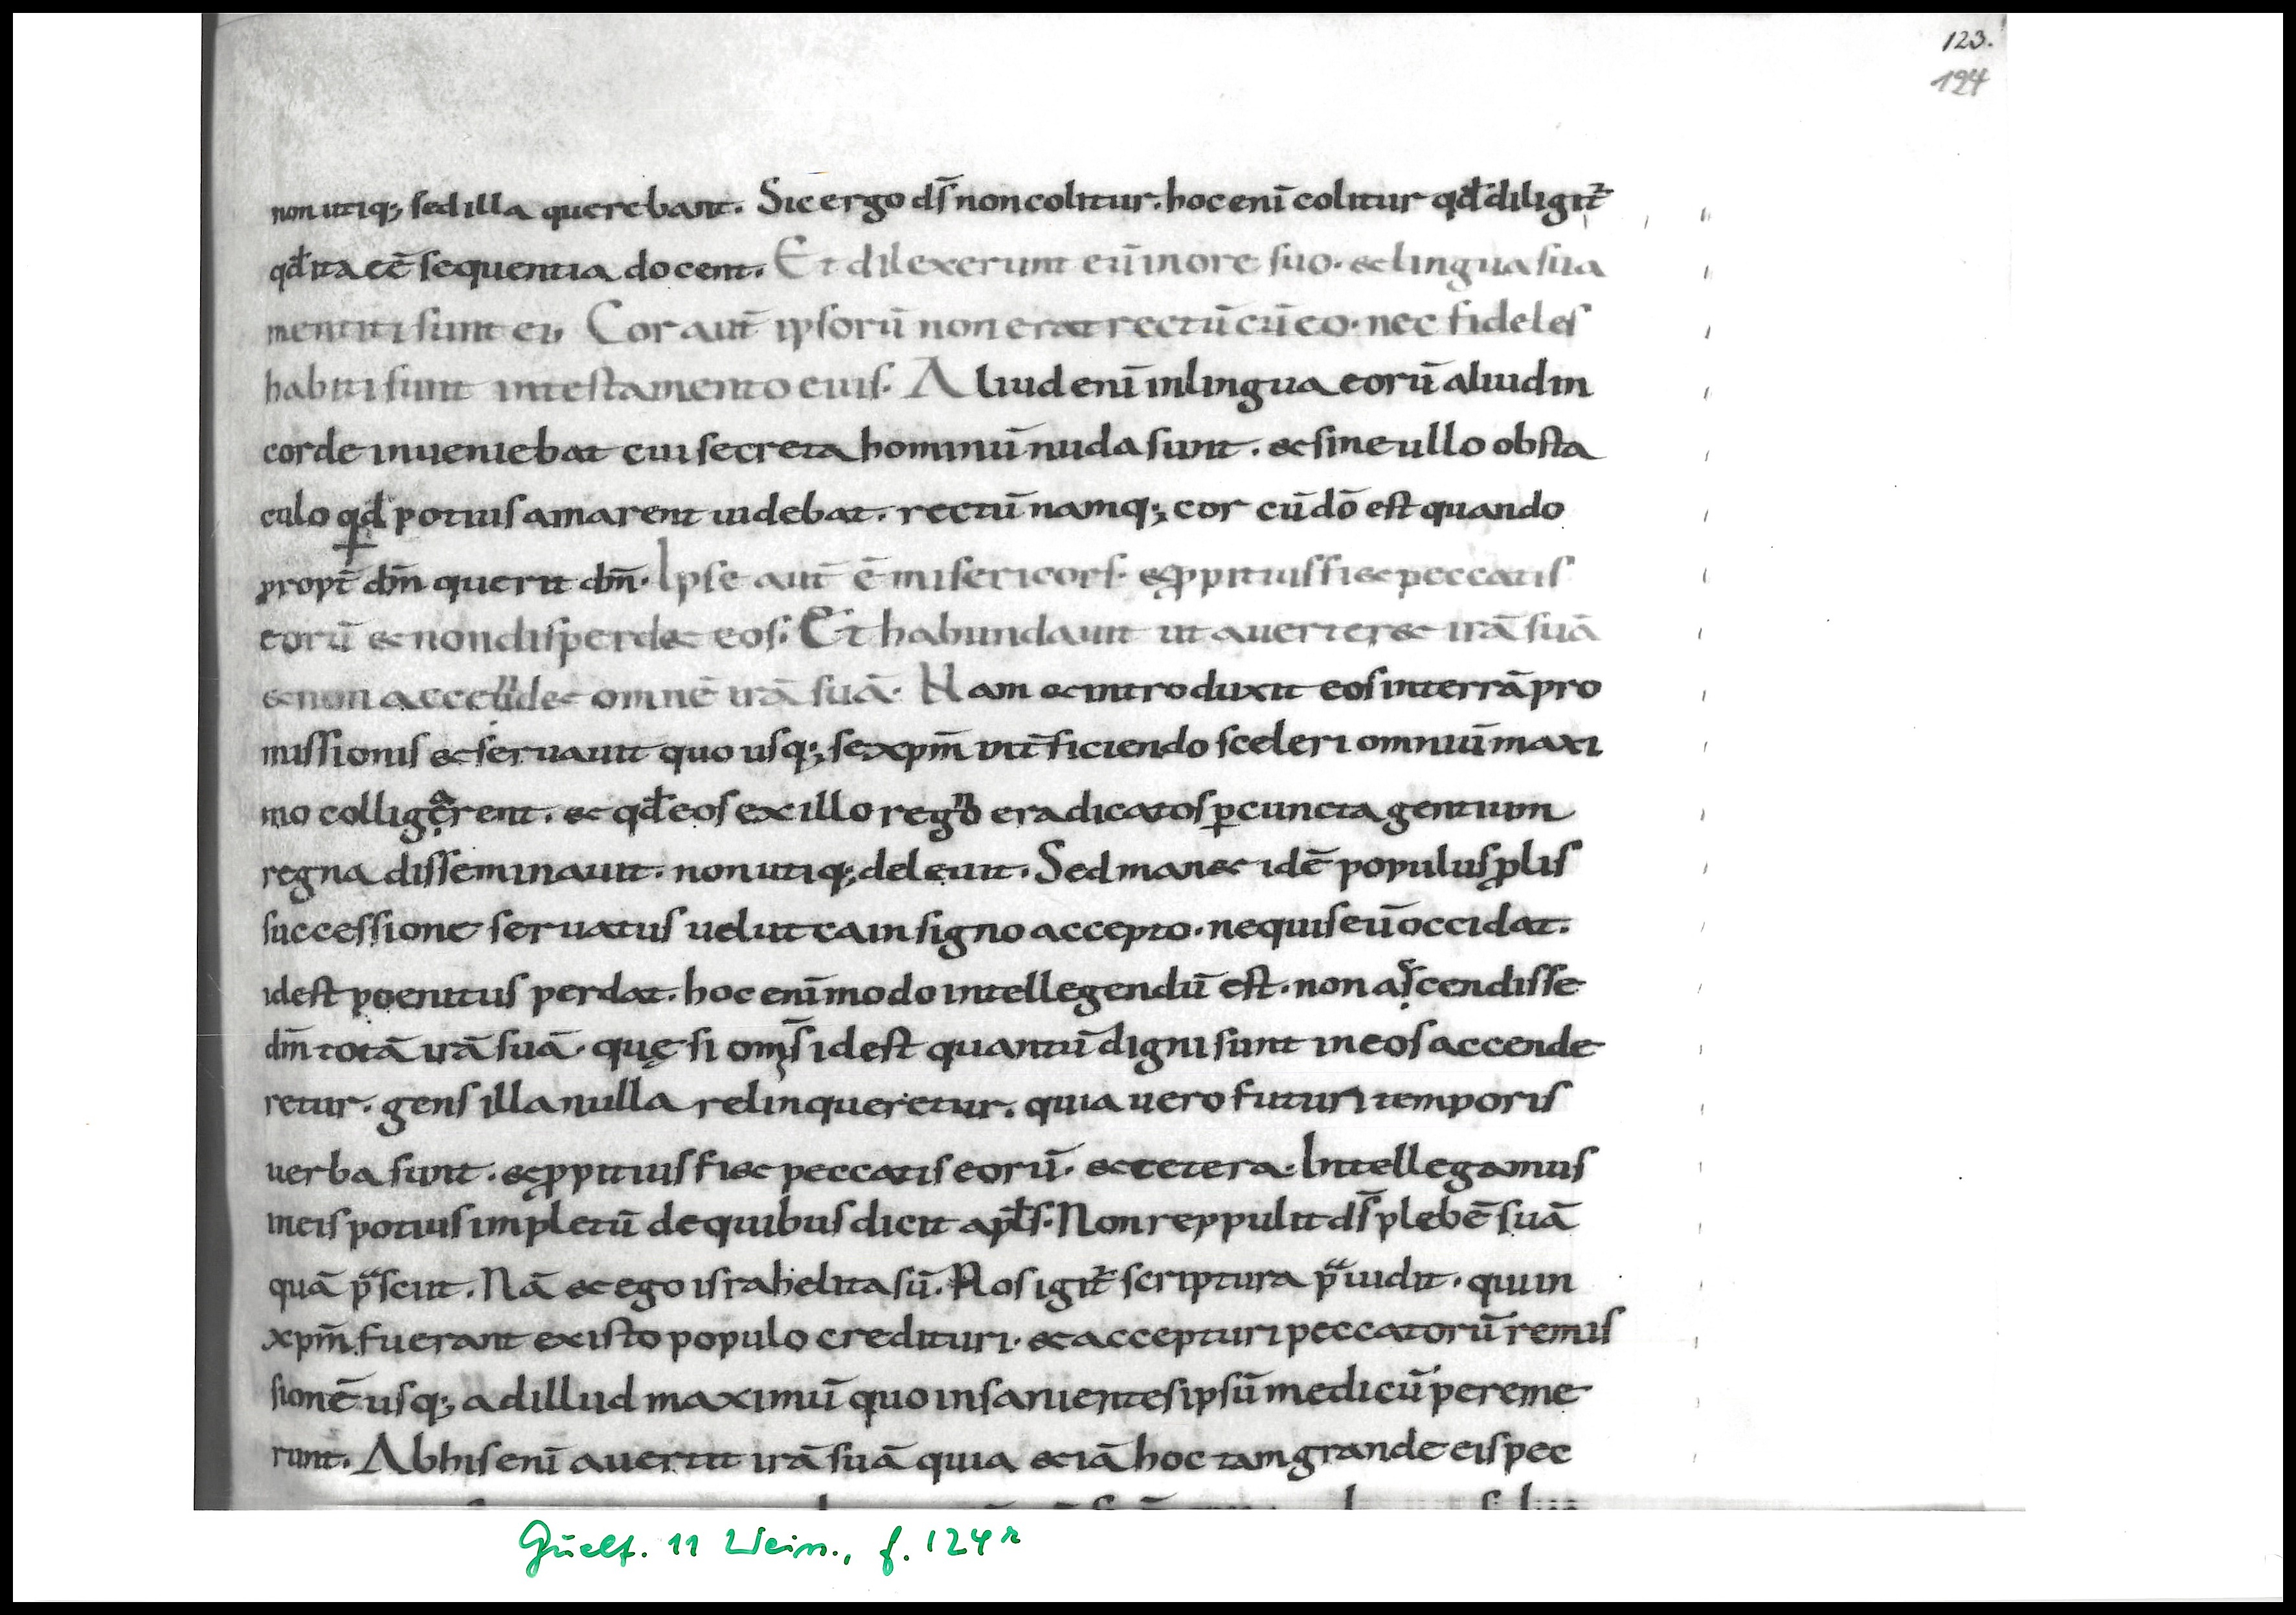 123.
124
non utiq; sed illa querebant. Sic ergo ds̄ non colitur. hoc enī colitur qđ diligit᷑
qđ ita eē sequentia docent. Et dilexerunt eū in ore suo. & lingua sua
mentiti sunt ei, Cor aut̄ ipsorū non erat rectū cū eo. nec fideles
habiti sunt in testamento eius. Aliud enī in lingua eorū aliud in
corde inueniebat cui secreta hominū nuda sunt. & sine ullo obsta
culo qd potius amarent uidebat. rectū namq; cor cū dō est quando
propt̄ dm̄ querit dm̄. Ipse aut̄ ē misericors. & ꝓpitius fi& peccatis
eorū & non disperd& eos. Et habundauit ut auerter& irā suā
& non accend& omnē irā suā. Nam & introduxit eos in terrā pro
missionis & seruauit quo usq; se xpm̄ int̄ficiendo sceleri omniū maxi
mo colligarent. & qđ eos ex illo regno eradicatos ꝑ cuncta gentium
regna disseminauit. non utiq; deleuit. Sed man& idē populus ꝓlis
successione seruatus uelut cain signo accepto. nequis eū occidat.
id est poenitus perdat. hoc enī modo intellegendū est. non accendisse
dm̄ totā irā suā. quę si oms̄ id est quantū digni sunt in eos accende
retur. gens illa nulla relinqueretur. quia uero futuri temporis
uerba sunt. & ꝓpitius fi& peccatis eorū. & cetera. Intellegamus
in eis potius impletū de quibus dicit apl̄s. Non reppulit ds̄ plebē suā
quā p̄sciit. Nā & ego israhelita sū. Hos igit᷑ scriptura p̄uidit. qui in
xpm̄ fuerant ex isto populo credituri. & accepturi peccatorū remis
sionē usq; ad illud maximū quo insanientes ipsū medicū pereme
runt. Ab his enī auertit irā suā quia &iā hoc tam grande eis pec
Guelf. 11 Weiss., f. 124ʳ